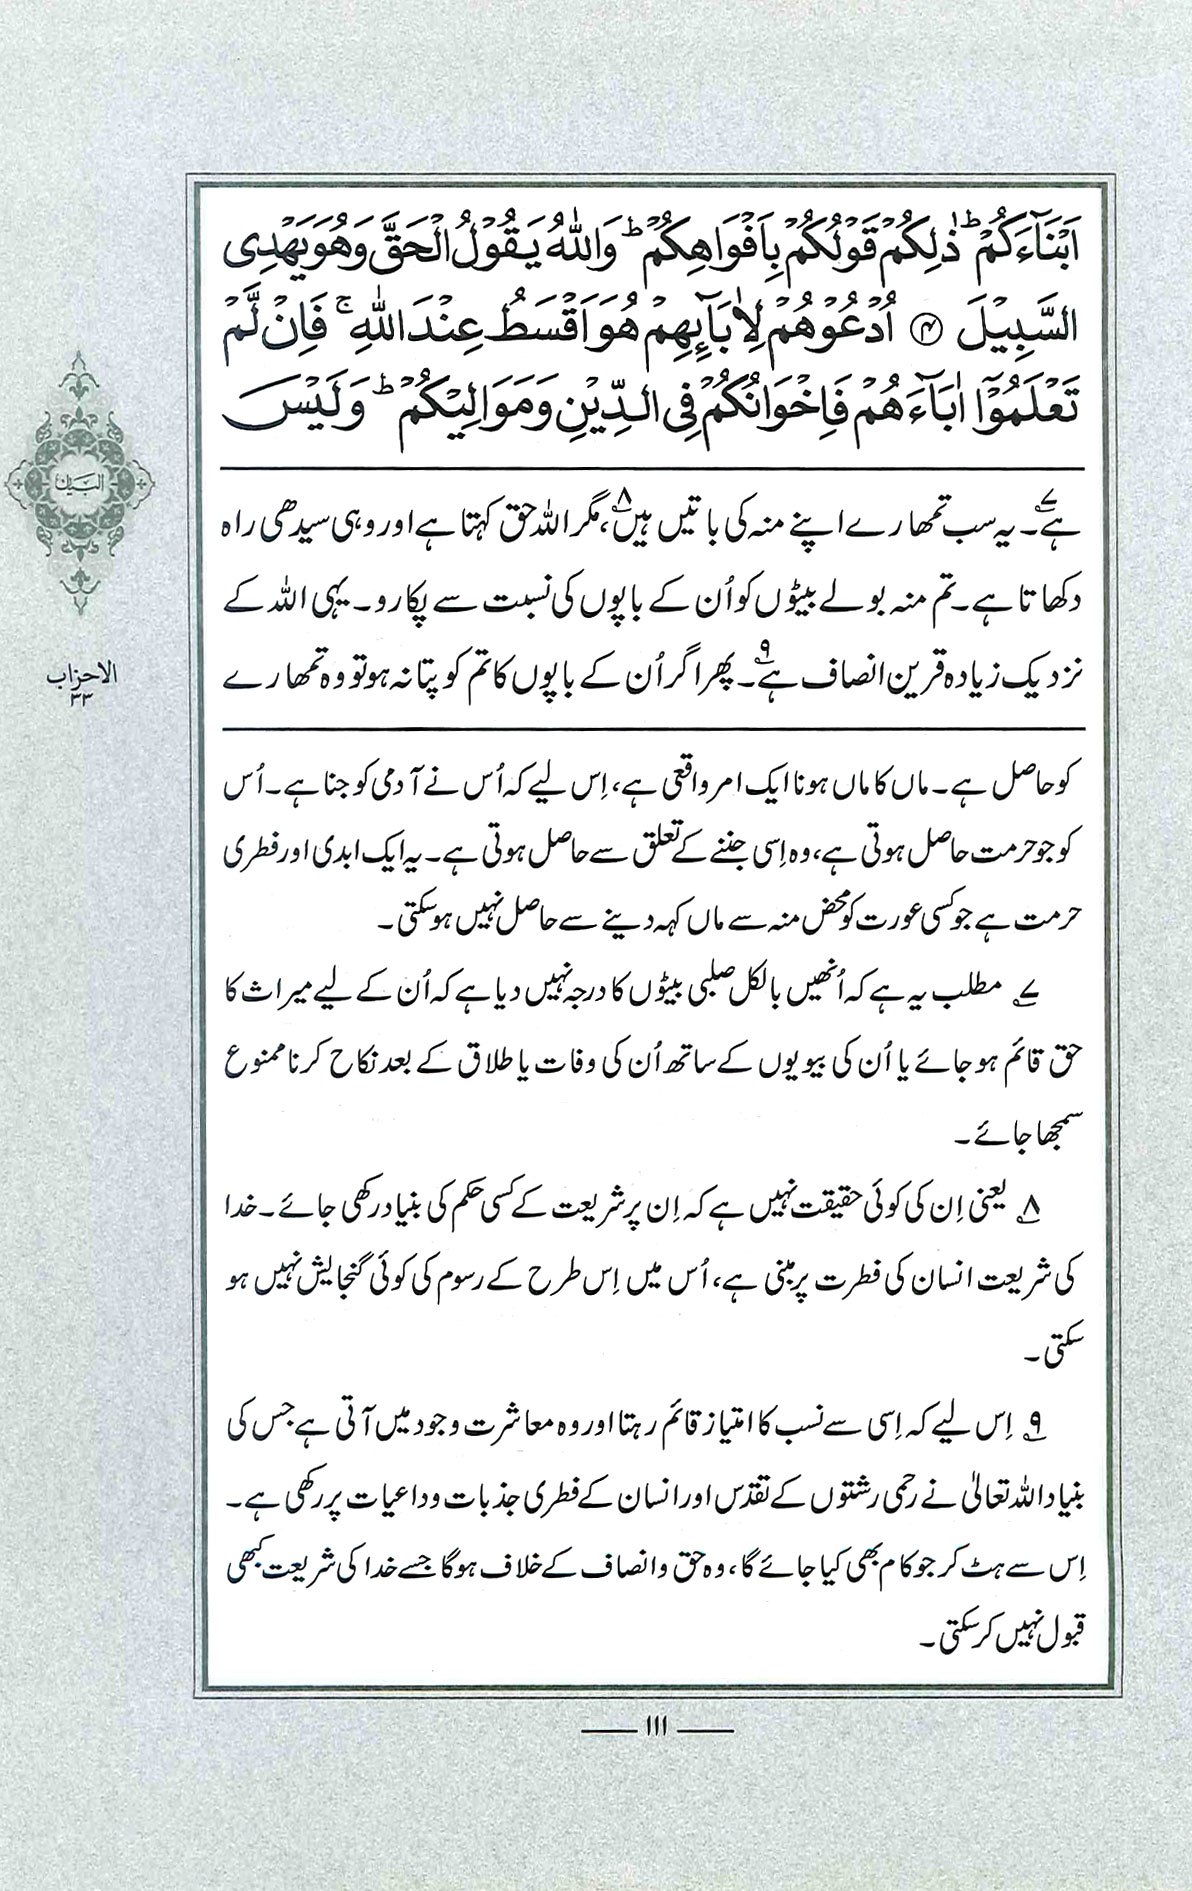 اَبْنَآءَكُمْ ؕ ذٰلِكُمْ قَوْلُكُمْ بِاَفْوَاهِكُمْ ؕ وَاللّٰهُ يَقُوْلُ الْحَقَّ وَهُوَ يَهْدِى
السَّبِيْلَ ﴿۴﴾ اُدْعُوْهُمْ لِاٰبَآئِهِمْ هُوَ اَقْسَطُ عِنْدَ اللّٰهِ ۚ فَاِنْ لَّمْ
تَعْلَمُوْۤا اٰبَآءَهُمْ فَاِخْوَانُكُمْ فِى الدِّيْنِ وَمَوَالِيْكُمْ ؕ وَلَيْسَ
ہے۷۔ یہ سب تمھارے اپنے منہ کی باتیں ہیں۸، مگر اللہ حق کہتا ہے اور وہی سیدھی راہ
دکھاتا ہے۔ تم منہ بولے بیٹوں کو اُن کے باپوں کی نسبت سے پکارو۔ یہی اللہ کے
نزدیک زیادہ قرین انصاف ہے۹۔ پھر اگر اُن کے باپوں کا تم کو پتا نہ ہو تو وہ تمھارے
کو حاصل ہے۔ ماں کا ماں ہونا ایک امر واقعی ہے، اِس لیے کہ اُس نے آدمی کو جنا ہے۔ اُس
کو جو حرمت حاصل ہوتی ہے، وہ اِسی جننے کے تعلق سے حاصل ہوتی ہے۔ یہ ایک ابدی اور فطری
حرمت ہے جو کسی عورت کو محض منہ سے ماں کہہ دینے سے حاصل نہیں ہو سکتی۔
۷ مطلب یہ ہے کہ اُنھیں بالکل صلبی بیٹوں کا درجہ نہیں دیا ہے کہ اُن کے لیے میراث کا
حق قائم ہو جائے یا اُن کی بیویوں کے ساتھ اُن کی وفات یا طلاق کے بعد نکاح کرنا ممنوع
سمجھا جائے۔
۸ یعنی اِن کی کوئی حقیقت نہیں ہے کہ اِن پر شریعت کے کسی حکم کی بنیاد رکھی جائے۔ خدا
کی شریعت انسان کی فطرت پر مبنی ہے، اُس میں اِس طرح کے رسوم کی کوئی گنجایش نہیں ہو
سکتی۔
۹ اِس لیے کہ اِسی سے نسب کا امتیاز قائم رہتا اور وہ معاشرت وجود میں آتی ہے جس کی
بنیاد اللہ تعالیٰ نے رحمی رشتوں کے تقدس اور انسان کے فطری جذبات و داعیات پر رکھی ہے۔
اِس سے ہٹ کر جو کام بھی کیا جائے گا، وہ حق و انصاف کے خلاف ہوگا جسے خدا کی شریعت کبھی
قبول نہیں کر سکتی۔
البیان
الاحزاب
۳۳
۱۱۱